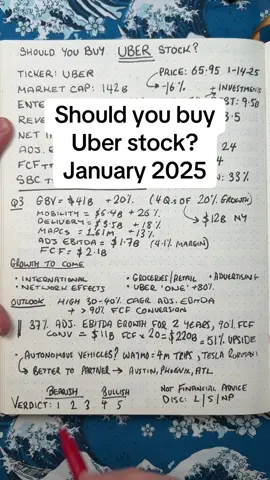 SHOULD YOU BUY UBER STOCK?
TICKER: UBER
PRICE: 65.95 1-14-25
MARKET CAP: 142B
-16%
+ INVESTMENTS
ENTE
BT: 9.5B
Should you buy
Uber stock?
January 2025
REVE
3.5
NET IN
ADJ. E
24
FCF
SBC
N: 33%
Q3 GBV = $41B +20% (4 Qs OF 20% GROWTH)
MOBILITY = $6.4B +26%
$128 NY
DELIVERY = $3.5B + 18%
MAPCS = 161M +13%
ADJ EBITDA = $1.7B (4.1% MARGIN)
FCF = $2.1B
GROWTH TO COME
• INTERNATIONAL • GROCERIES/RETAIL • ADVERTISING
• NETWORK EFFECTS • UBER 'ONE' +80%
OUTLOOK HIGH 30-40% CAGR ADJ. EBITDA
+ > 90% FCF CONVERSION
37% ADJ. EBITDA GROWTH FOR 2 YEARS, 90% FCF
CONV = $11B FCF × 20 = $220B = 51% UPSIDE
• AUTONOMOUS VEHICLES? WAYMO = 4M TRIPS, TESLA
BETTER TO PARTNER → AUSTIN, PHOENIX, ATL
BEARISH BULLISH
NOT FINANCIAL ADVICE
VERDICT: 1 2 3 4 5
DISC: L/S/NP